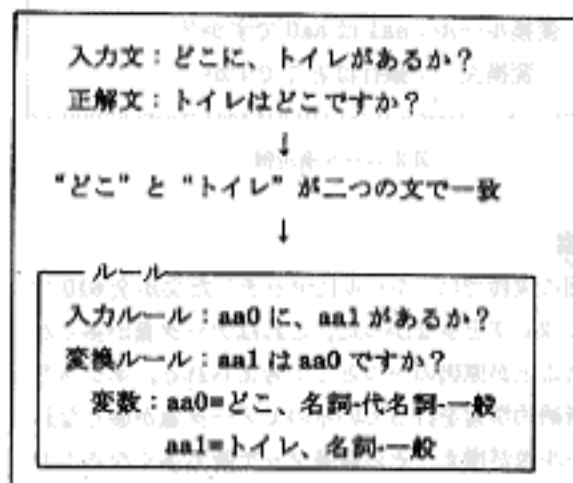 入力文：どこに、トイレがあるか？
正解文：トイレはどこですか？
↓
“どこ”と“トイレ”が二つの文で一致
↓
ルール
入力ルール：aa0 に、aa1 があるか？
変換ルール：aa1 は aa0 ですか？
変数：aa0=どこ、名詞-代名詞-一般
aa1=トイレ、名詞-一般